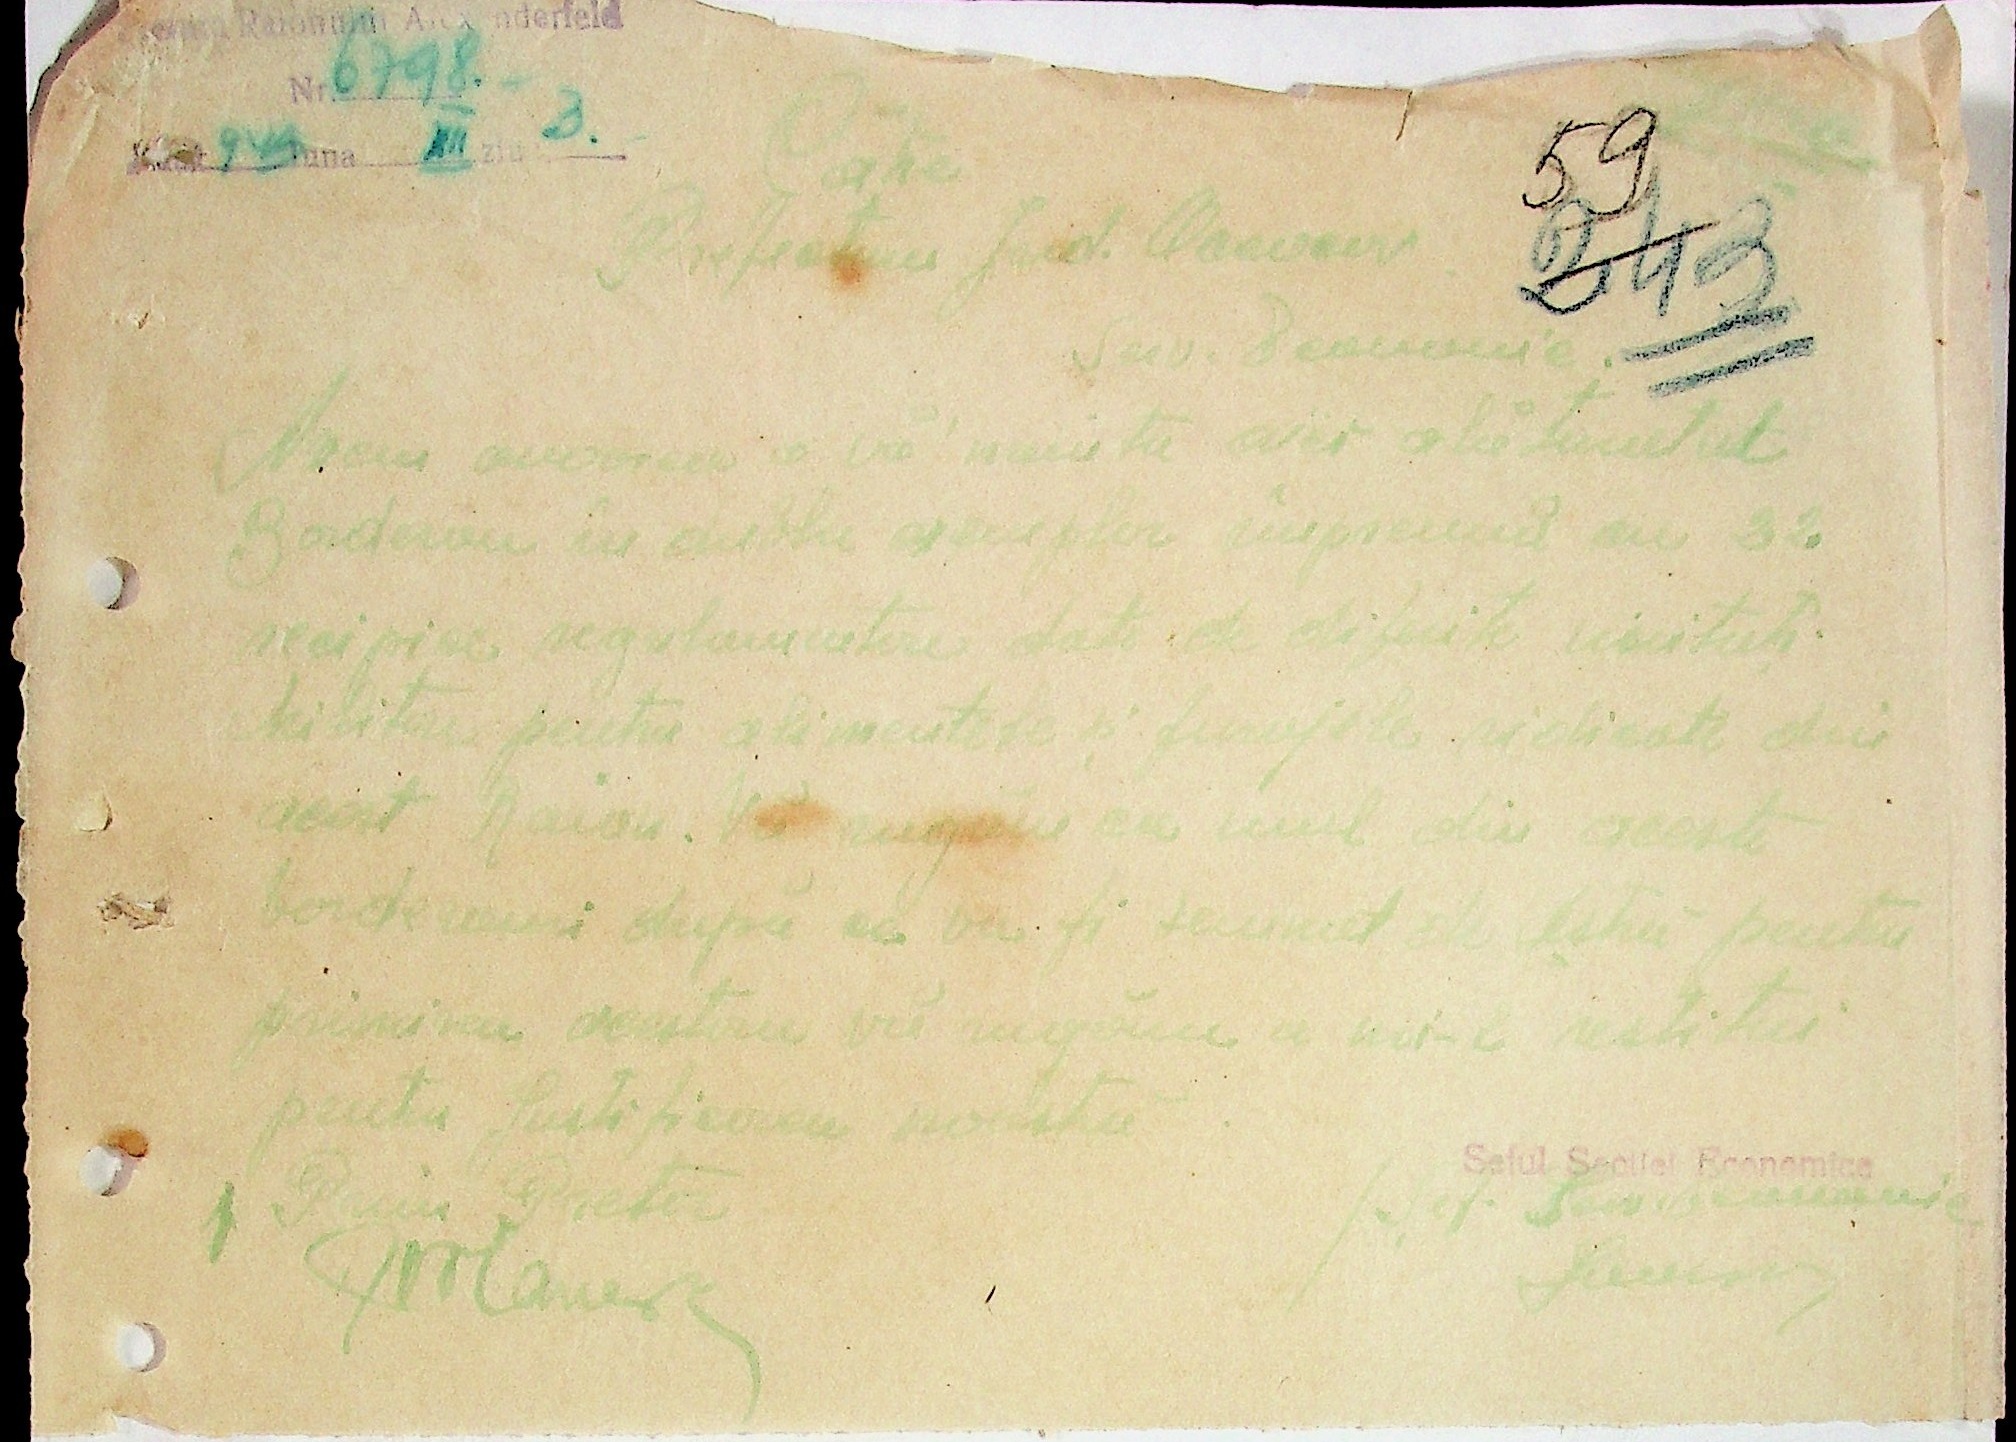 Raionului Alexanderfeld
Nr. 6798.-
194 luna III ziua 3.-
59
243
Către
Prefectura Jud. Oceacov
Serv. Economic.
Avem onoarea a vă înainta aici alăturatul
Borderou în dublu exemplar împreună cu 32
recipise regulamentare date de diferite unități
militare pentru alimentele și furajele ridicate din
acest Raion. Vă rugăm ca unul din aceste
borderouri după ce va fi semnat de pentru
primirea acestora vă rugăm a ni-l restitui
pentru justificarea noastră
Prim Pretor
Șeful Secției Economice
Șef. Serv. Economic